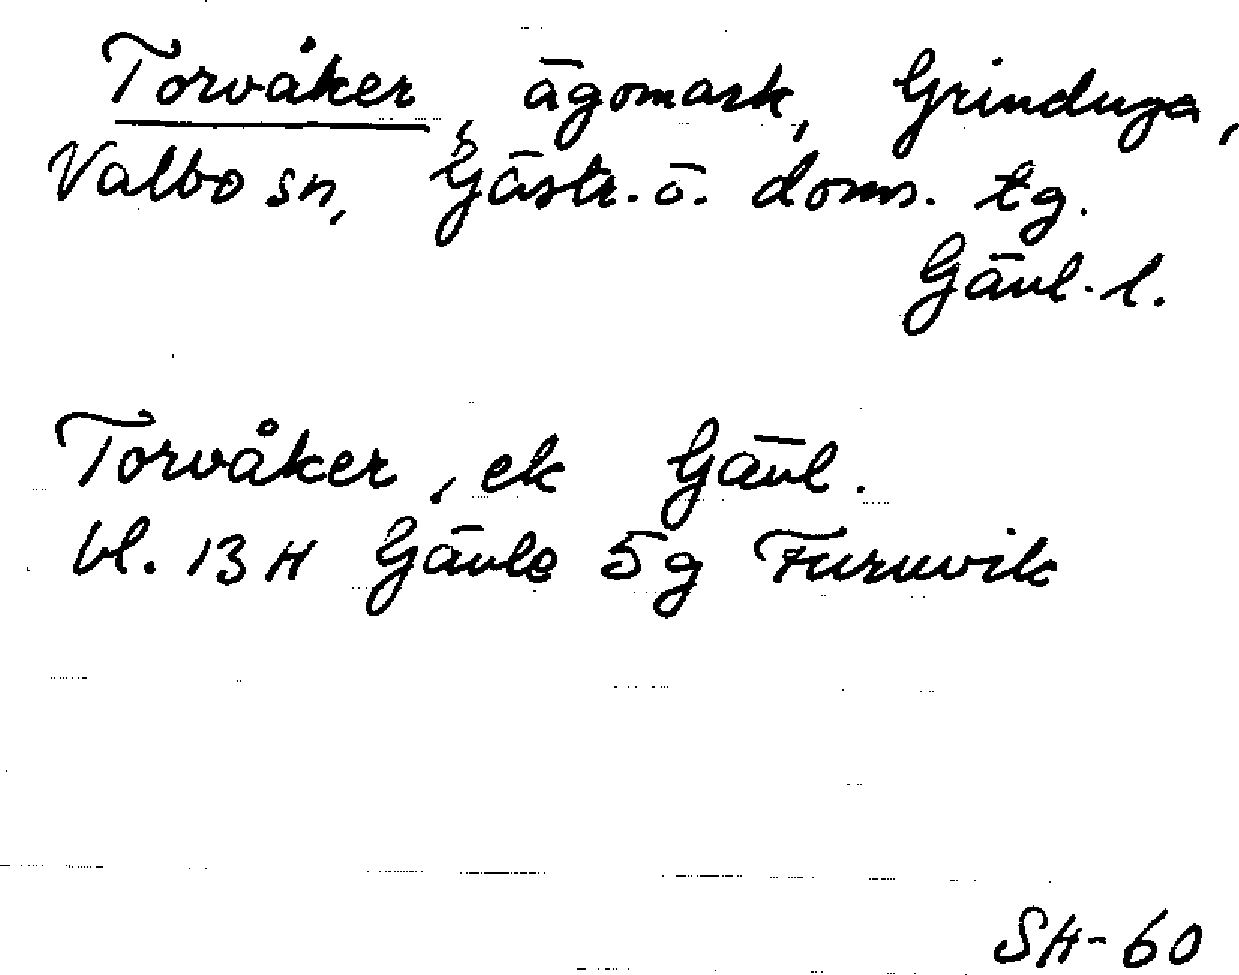 Torvåker, ägomark, Grinduga,
Valbo sn, Gästr. ö. doms. tg.
Gävl. l.
Torvåker, ek Gävl.
bl. 13H Gävle 5g Furuvik
SH-60